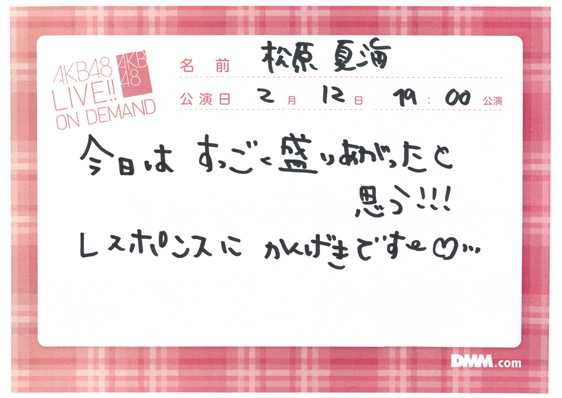 AKB48
LIVE!!
ON DEMAND
AKB
48
名前 松原夏海
公演日 2月 12日 19:00 公演
今日は すっごく盛りあがったと
思う!!!
レスポンスに かんげきです〜♡…
DMM.com